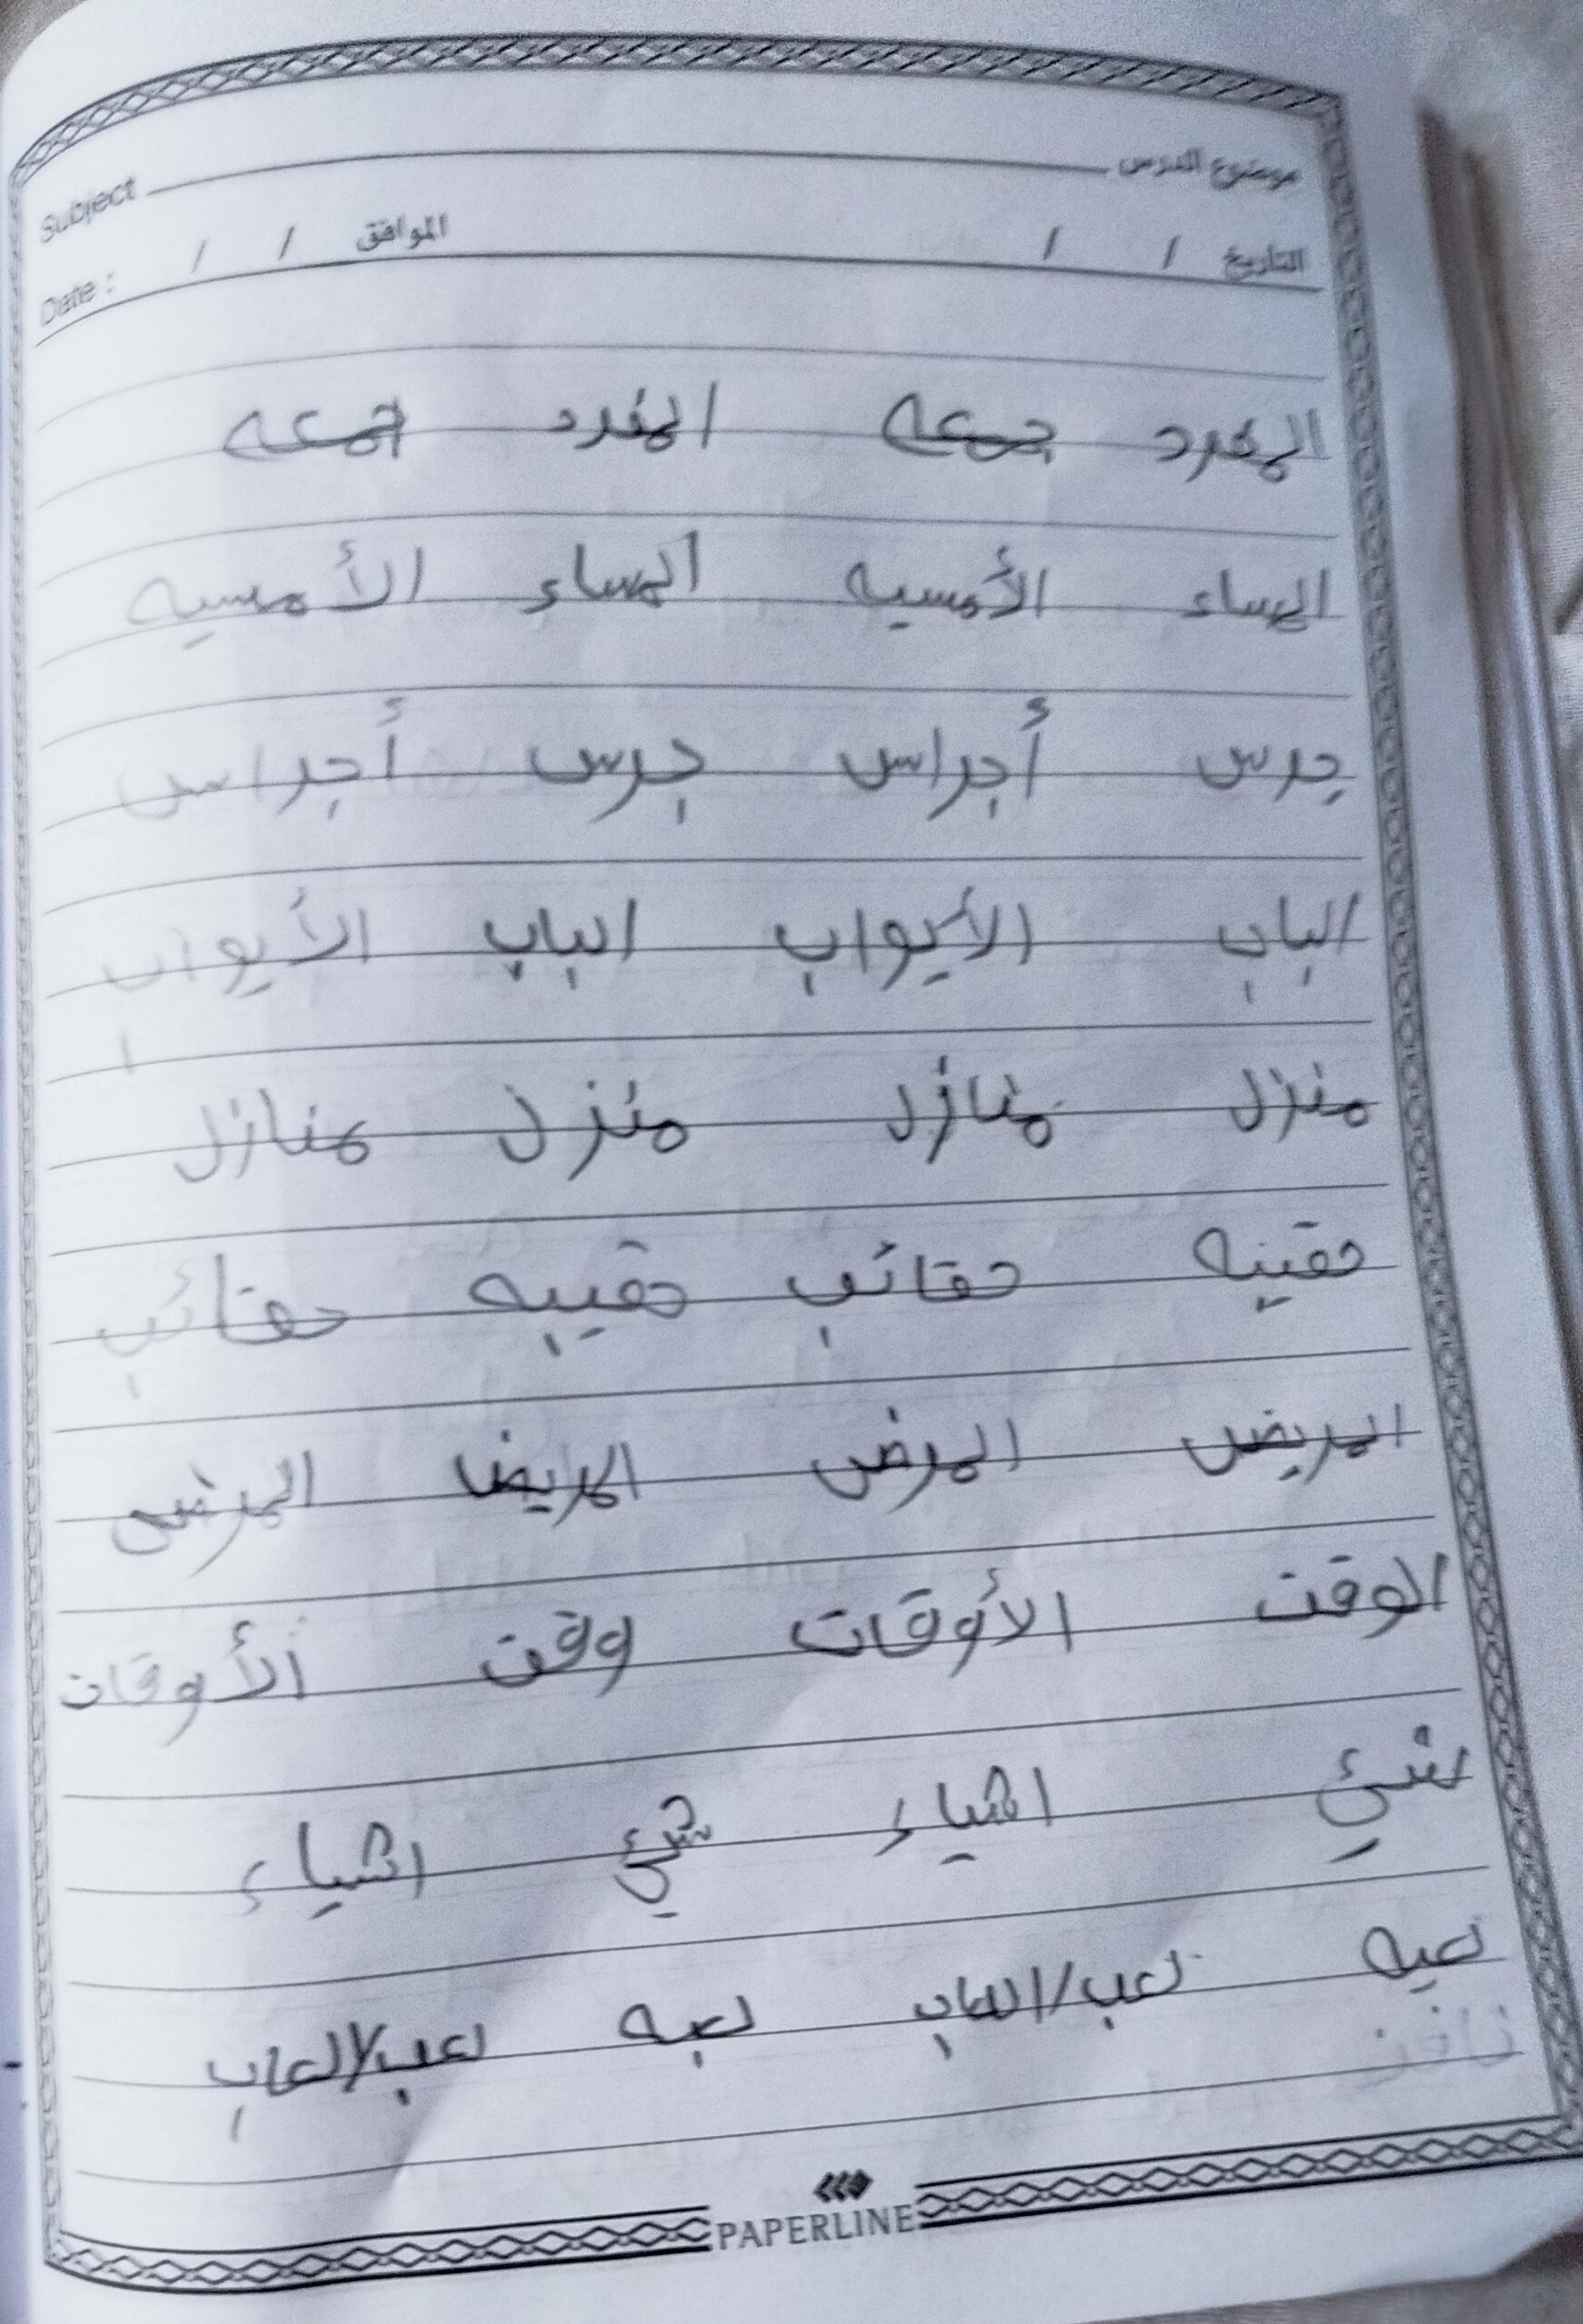 موضوع الدرس Subject
التاريخ / / الموافق / / Date :
المفرد جمعه المفرد جمعه
المساء الأمسيه المساء الأمسيه
جرس أجراس جرس أجراس
الباب الأبواب الباب الأبواب
منزل منازل منزل منازل
حقيبه حقائب حقيبه حقائب
المريض المرض المريض المرضى
الوقت الأوقات وقت الأوقات
شئ اشياء شئ اشياء
لعبه لعب/العاب لعبه لعب/العاب
PAPERLINE